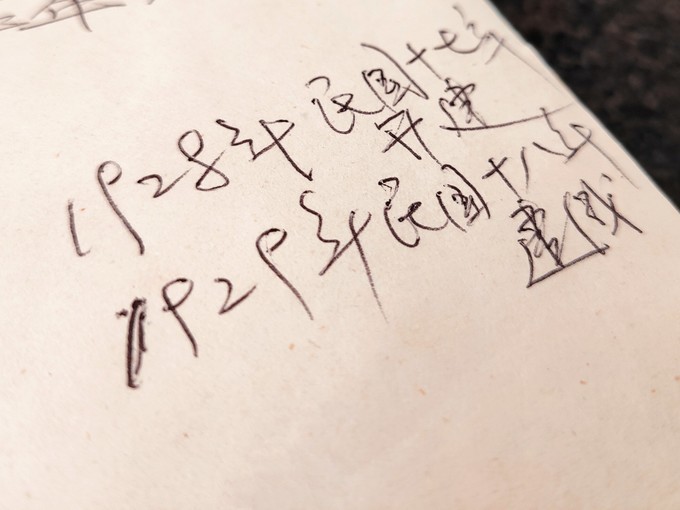 1928年民国十七年
开建
1929年民国十八年
建成